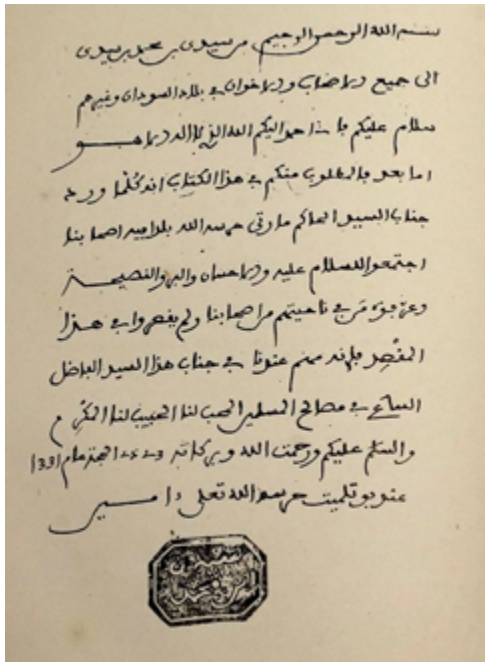 بسم الله الرحمن الرحيم من سيدي بن محمد بن سيدي
الى جميع الاصحاب والاخوان في بلاد السودان وغيرهم
سلام عليكم فانا احمد اليكم الله الذي لا اله الا هو
اما بعد فالمطلوب منكم في هذا الكتاب انه كلما ورد
جناب السيد الحاكم مارتي حرسه الله بلدا فيه اصحابنا
اجتمعوا للسلام عليه والاحسان والبر والنصيحة
من في ناحيتهم من اصحابنا ولم يقصروا في هذا
المقصد فإنه مهم عندنا في جناب هذا السيد الفاضل
الساعي في مصالح المسلمين المحب لنا الحبيب لنا المكرم
والسلم عليكم ورحمت الله وبركاته الحجة عام 1331
عند بوتلميت حرسه الله تعلى ءامين